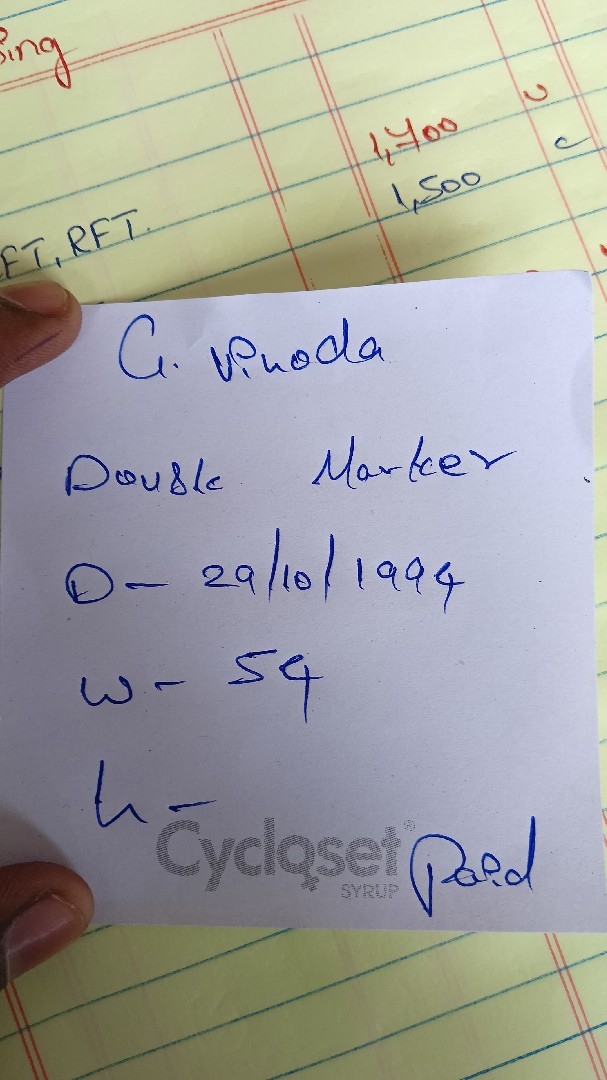 sing
1,700
1,500
FT, RFT.
G. Vinoda
Double Marker
D - 29/10/1994
W - 54
h -
Cycloset®
SYRUP
Paid